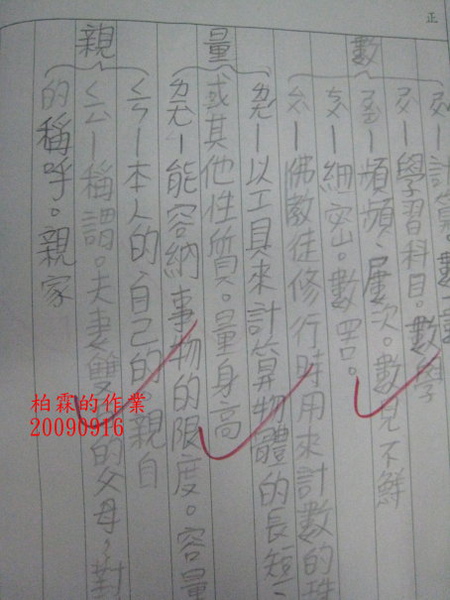 正
數
ㄕㄨˇ—計算。數一數
ㄕㄨˋ—學習科目。數學
ㄕㄨㄛˋ—頻頻、屢次。數見不鮮
ㄘㄨˋ—細密。數罟。
—佛教徒修行時用來計數的珠
量
ㄌㄧㄤˊ—以工具來計算物體的長短、
或其他性質。量身高
ㄌㄧㄤˋ—能容納事物的限度。容量
親
ㄑㄧㄣ—本人的、自己的。親自
ㄑㄧㄥˋ—稱謂。夫妻雙方的父母,對
的稱呼。親家
柏霖的作業
20090916